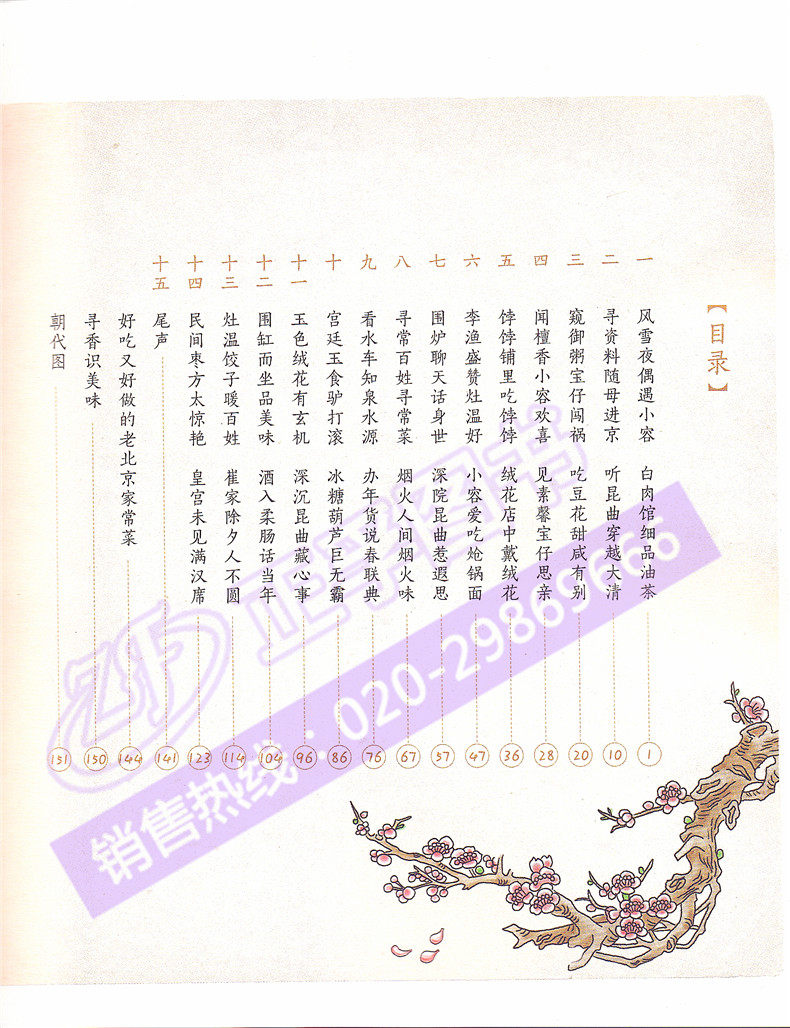 【目录】
一 风雪夜偶遇小容 白肉馆细品油茶 1
二 寻资料随母进京 听昆曲穿越大清 10
三 窥御粥宝仔闯祸 吃豆花甜咸有别 20
四 闻檀香小容欢喜 见素馨宝仔思亲 28
五 饽饽铺里吃饽饽 绒花店中戴绒花 36
六 李渔盛赞灶温好 小容爱吃炝锅面 47
七 围炉聊天话身世 深院昆曲惹遐思 57
八 寻常百姓寻常菜 烟火人间烟火味 67
九 看水车知泉水源 办年货说春联典 76
十 宫廷玉食驴打滚 冰糖葫芦巨无霸 86
十一 玉色绒花有玄机 深沉昆曲藏心事 96
十二 围缸而坐品美味 酒入柔肠话当年 104
十三 灶温饺子暖百姓 崔家除夕人不圆 114
十四 民间枣方太惊艳 皇宫未见满汉席 123
十五 尾声 141
好吃又好做的老北京家常菜 144
寻香识美味 150
朝代图 151
正孚图书
销售热线：020-29869666